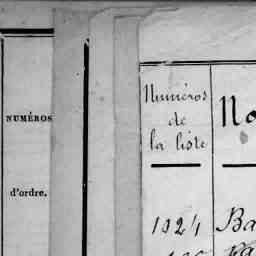 NUMÉROS
d'ordre.
Numéros
de
la liste
No
1024 Ba